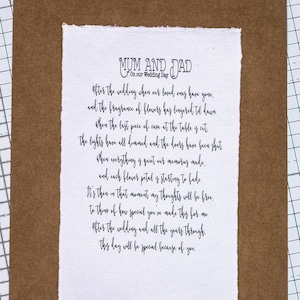 MUM AND DAD
On our Wedding Day
After the wedding when our loved ones have gone,
and the fragrance of flowers has lingered til dawn,
When the last piece of cake at the table is cut,
The lights have all dimmed and the doors have been shut.
When everything is quiet our memories made,
and each flower petal is starting to fade.
It's then in that moment my thoughts will be free,
to think of how special you've made this for me.
After the wedding and all the years through,
this day will be special because of you